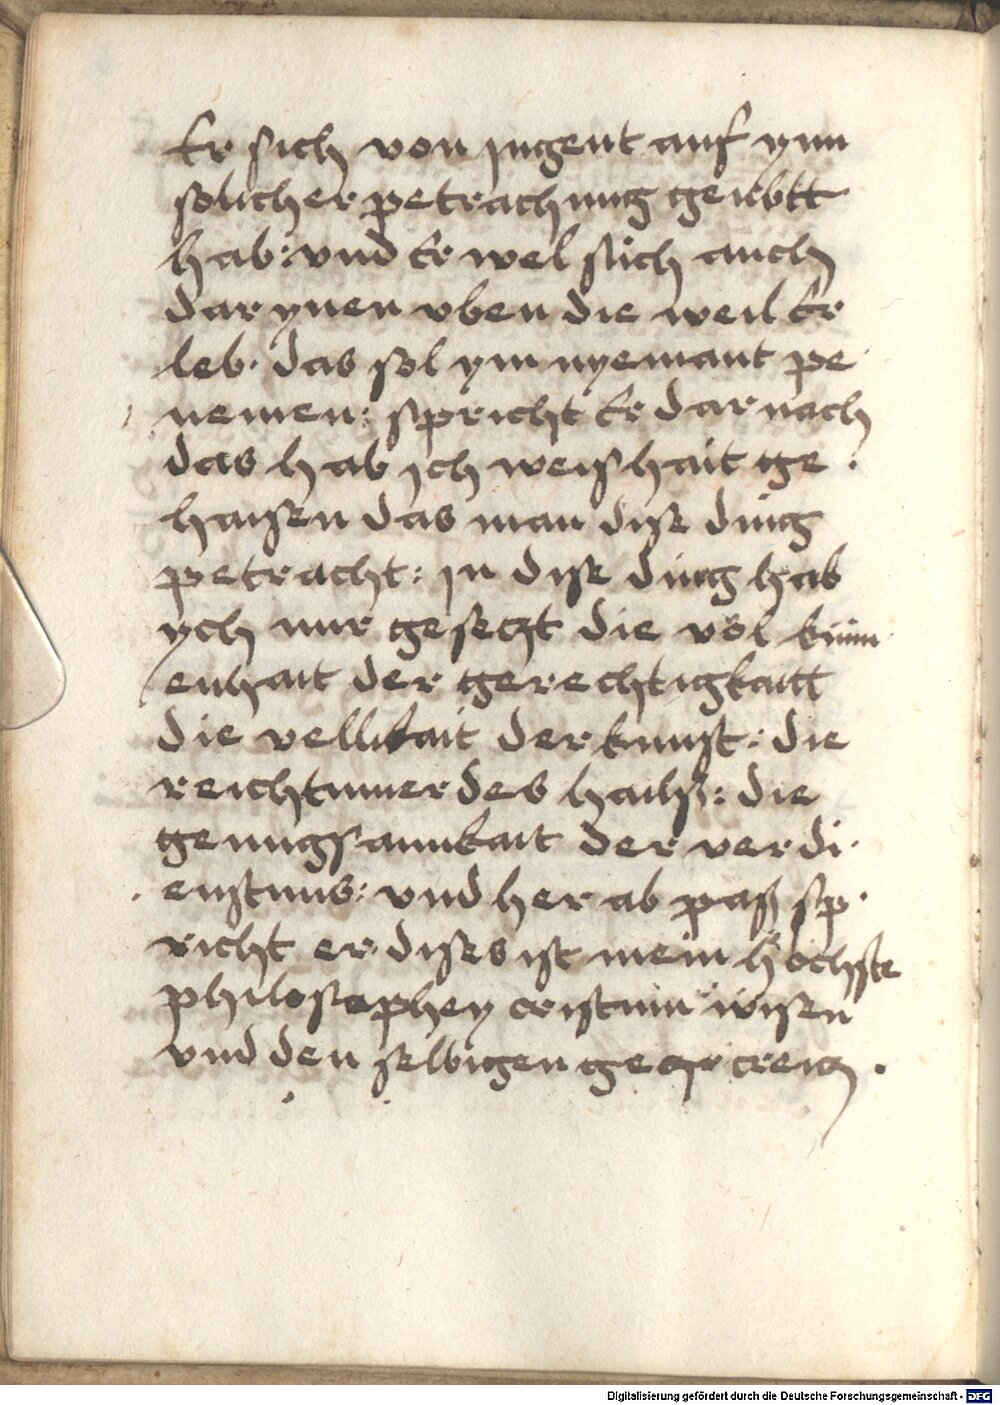 Er sich von jugent auf ynn
solicher petrachnug geubtt
hab: vnd Er wel sich auch
dar ynen vben die weil Er
leb. das sol ym nyemant pe
nemen: spricht Er dar nach
das hab jch weishait ge
haisen das man dise ding
petracht: jn dise ding hab
ych nur gesetzt die vol kum
enhait der gerechtigkaitt
die vellikait der kunst: die
reichtumer des hailß: die
genugsamkait der verdi
enstnus: vnd her ab paß sp
richt er dises ist mein höchste
philosophey cristum wisen
vnd den selbigen ge creitz.
Digitalisierung gefördert durch die Deutsche Forschungsgemeinschaft - DFG